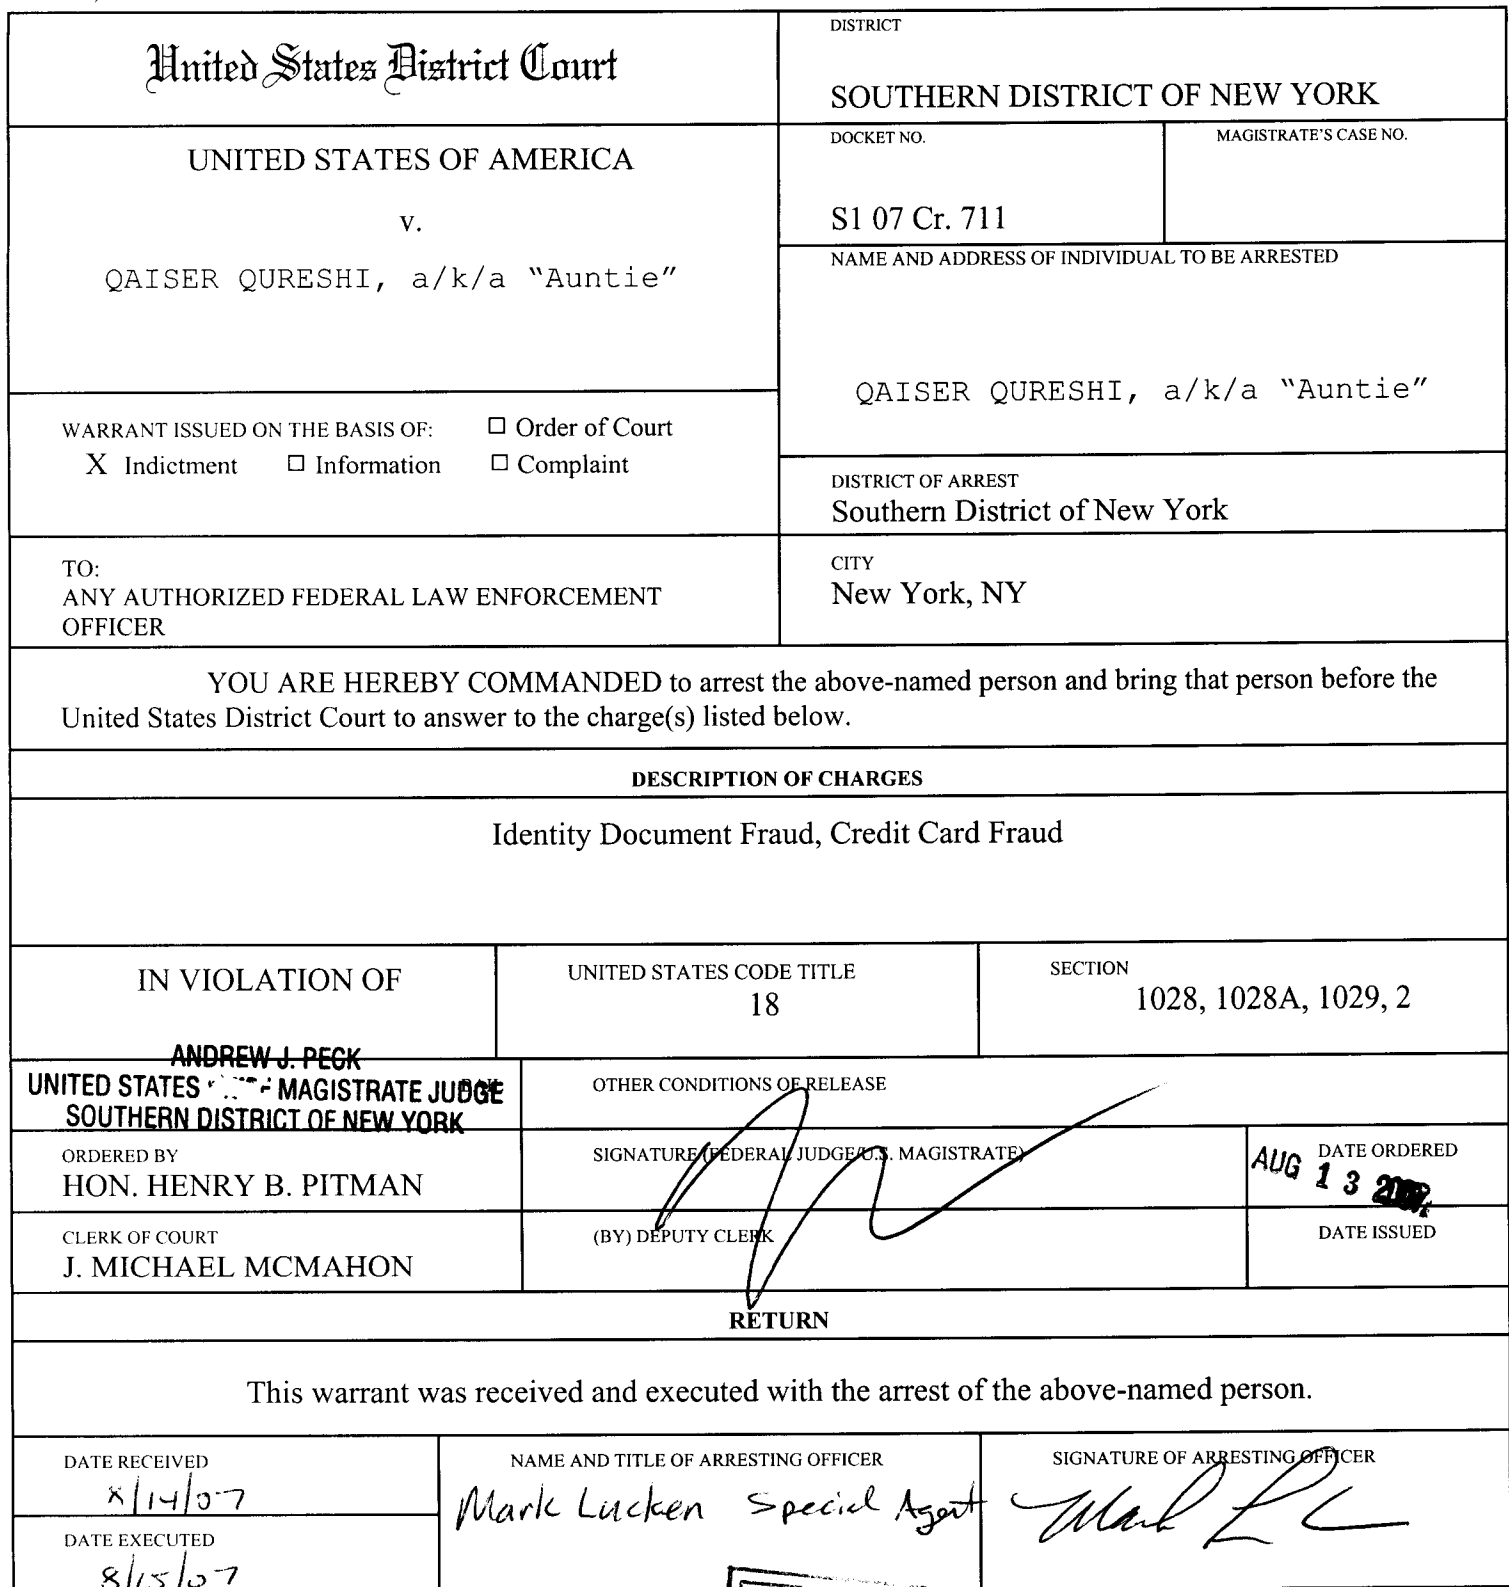 United States District Court
DISTRICT
SOUTHERN DISTRICT OF NEW YORK
UNITED STATES OF AMERICA
v.
QAISER QURESHI, a/k/a “Auntie”
DOCKET NO.
S1 07 Cr. 711
MAGISTRATE'S CASE NO.
NAME AND ADDRESS OF INDIVIDUAL TO BE ARRESTED
QAISER QURESHI, a/k/a “Auntie”
WARRANT ISSUED ON THE BASIS OF: □ Order of Court
X Indictment □ Information □ Complaint
DISTRICT OF ARREST
Southern District of New York
TO:
ANY AUTHORIZED FEDERAL LAW ENFORCEMENT
OFFICER
CITY
New York, NY
YOU ARE HEREBY COMMANDED to arrest the above-named person and bring that person before the
United States District Court to answer to the charge(s) listed below.
DESCRIPTION OF CHARGES
Identity Document Fraud, Credit Card Fraud
IN VIOLATION OF
UNITED STATES CODE TITLE
18
SECTION
1028, 1028A, 1029, 2
ANDREW J. PECK
UNITED STATES MAGISTRATE JUDGE
SOUTHERN DISTRICT OF NEW YORK
OTHER CONDITIONS OF RELEASE
ORDERED BY
HON. HENRY B. PITMAN
SIGNATURE (FEDERAL JUDGE/U.S. MAGISTRATE)
DATE ORDERED
AUG 13 2007
CLERK OF COURT
J. MICHAEL MCMAHON
(BY) DEPUTY CLERK
DATE ISSUED
RETURN
This warrant was received and executed with the arrest of the above-named person.
DATE RECEIVED
8/14/07
NAME AND TITLE OF ARRESTING OFFICER
Mark Lucken Special Agent
SIGNATURE OF ARRESTING OFFICER
DATE EXECUTED
8/15/07